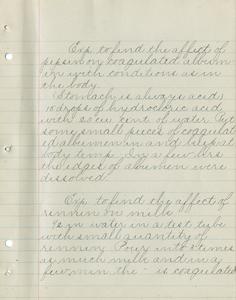 Exp. to find the affect of
pepsin on coagulated albumin
in with conditions as in
the body.
Stomach is always acid,
10 drops of hydrochloric acid
with 20 cu. cent of water. Put
some small pieces of coagulat
ed albumen in and keep at
body temp. In a few hrs
the edges of albumen were
dissolved.
Exp. to find the affect of
rennin on milk
in water in a test tube
with small quantity of
rennin. Pour into 3 times
as much milk and in a
few min. the is coagulated